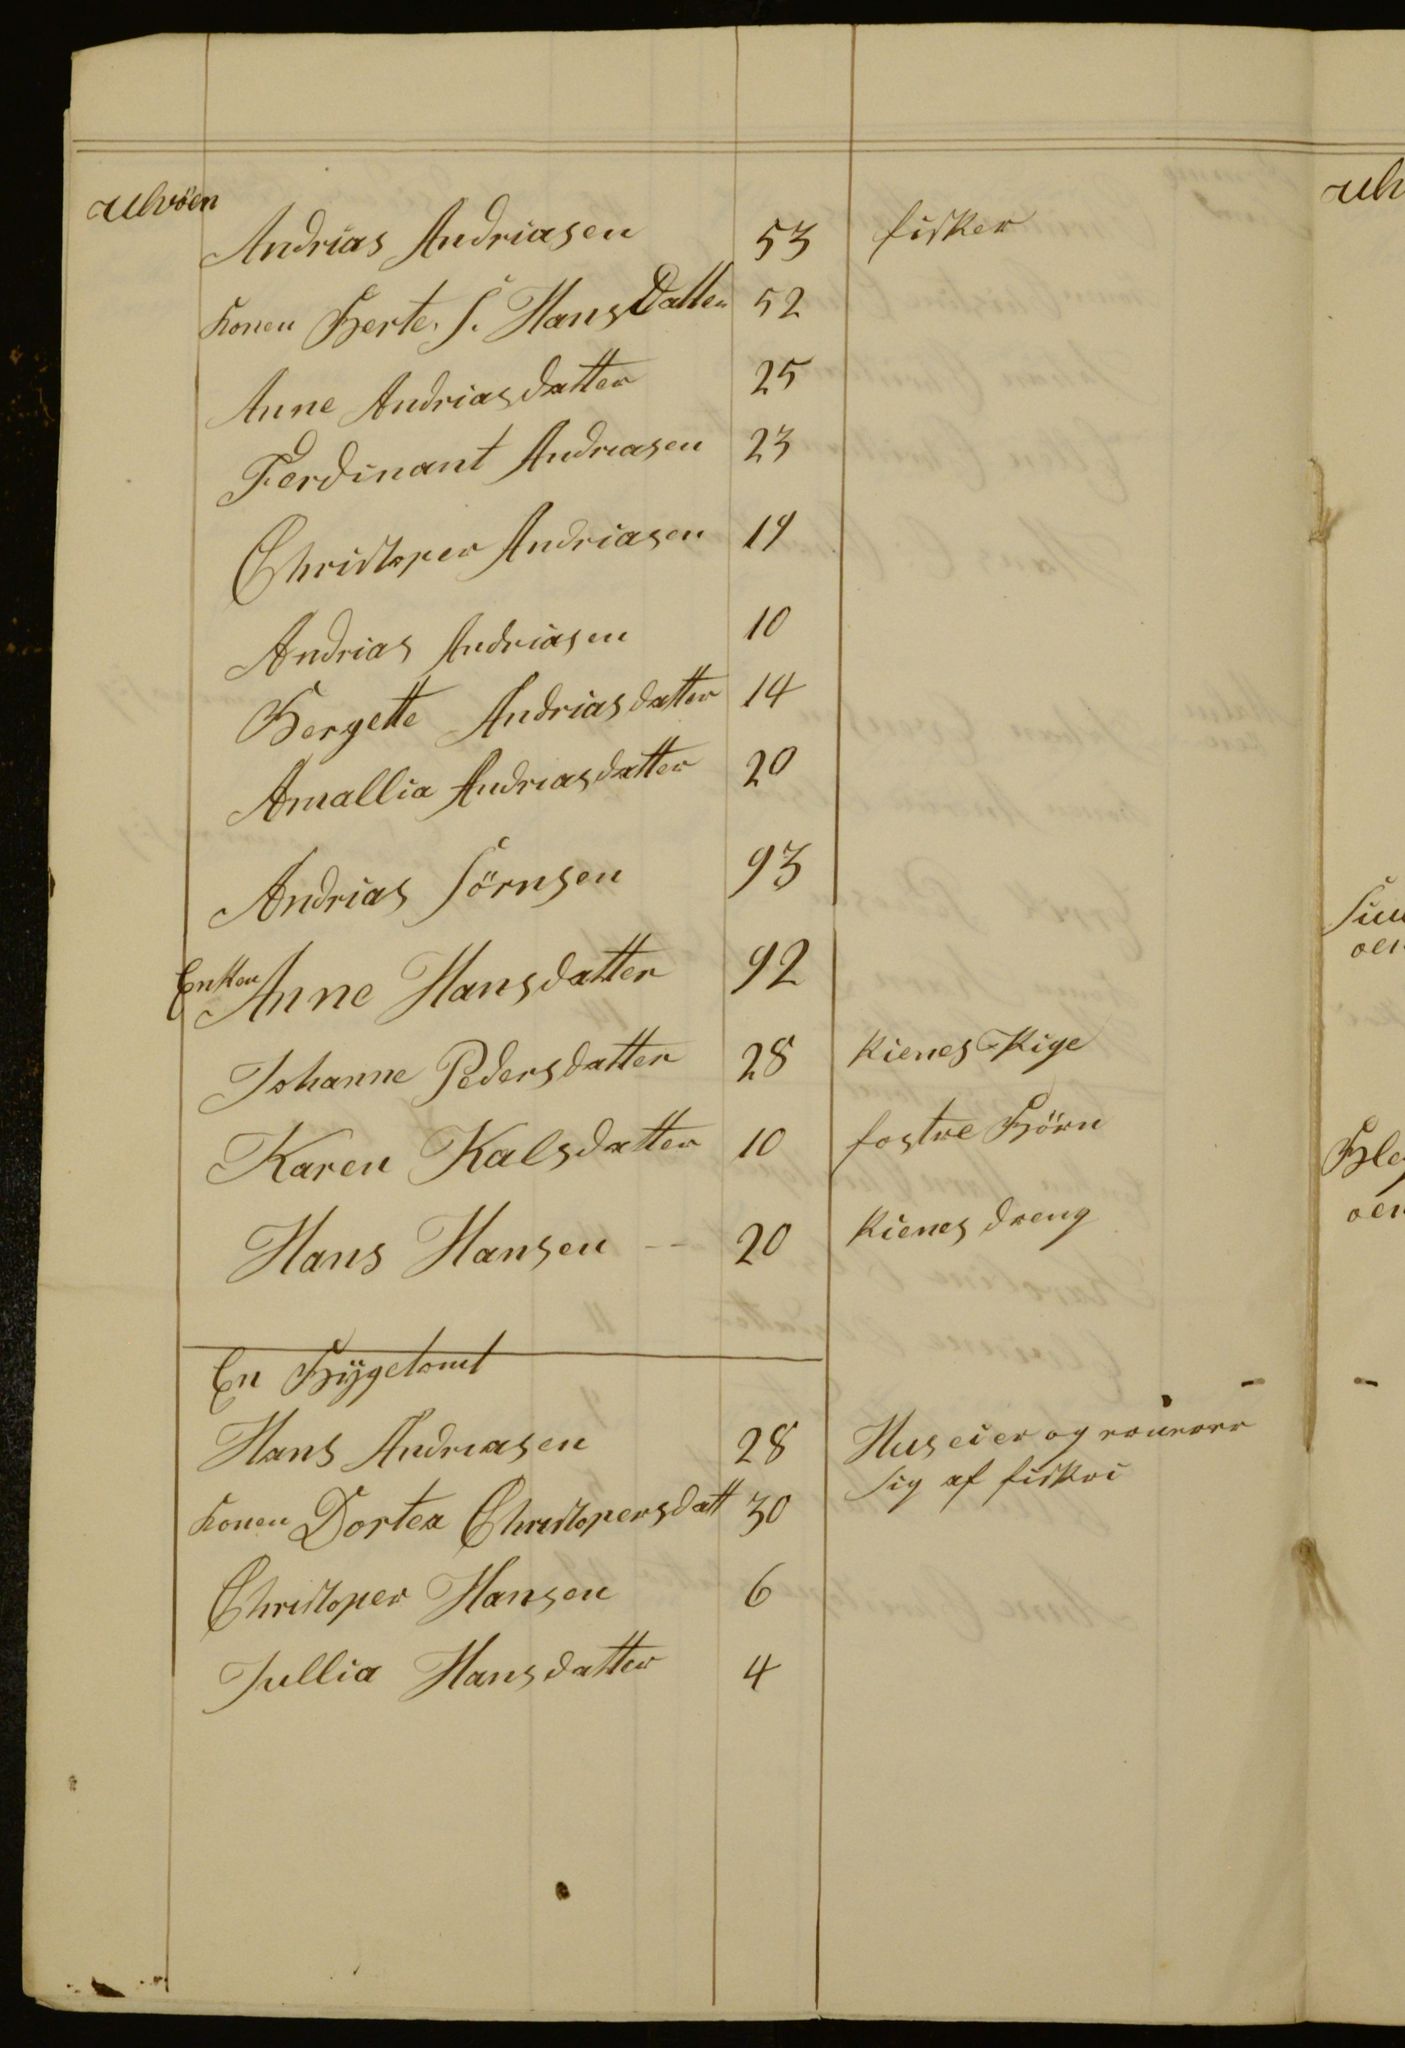 Ulvöen
Andrias Andriasen 53 fisker
Konen Berte. S. Hans Datter 52
Anne Andriasdatter 25
Ferdinant Andriasen 23
Christoper Andriasen 19
Andrias Andriasen 10
Bergette Andriasdatter 14
Amallia Andriasdatter 20
Andrias Sörnsen 93
Enken Anne Hansdatter 92
Johanne Pedersdatter 28 kienes Pige
Karen Kalsdatter 10 fostre Börn
Hans Hansen -- 20 kienes dreng
En Bÿgetomt
Hans Andriasen 28 Huseier og
sig af fiskri
Konen Dortea Christopersdatt 30
Christoper Hansen 6
Jullia Hansdatter 4